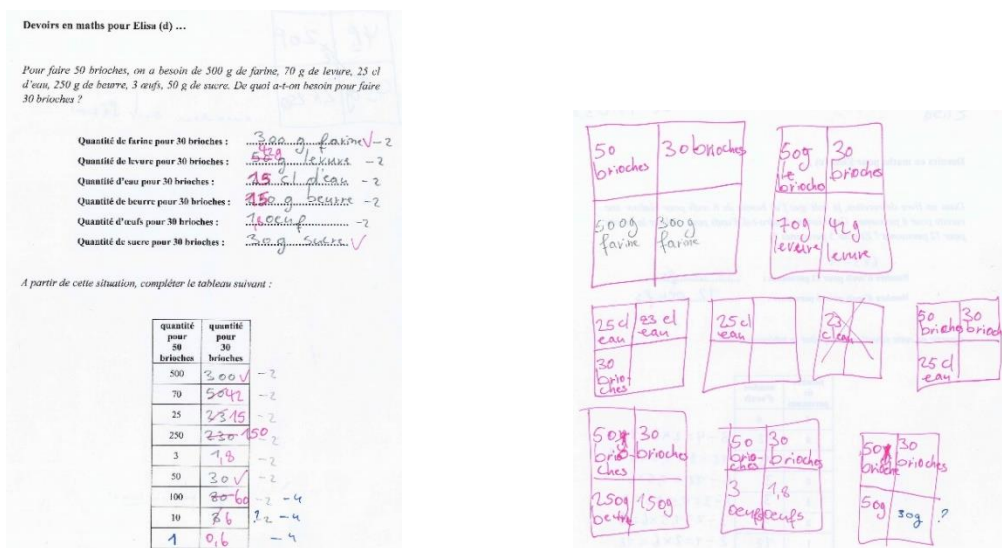 Devoirs en maths pour Elisa (d) ...
Pour faire 50 brioches, on a besoin de 500 g de farine, 70 g de levure, 25 cl
d'eau, 250 g de beurre, 3 œufs, 50 g de sucre. De quoi a-t-on besoin pour faire
30 brioches ?
Quantité de farine pour 30 brioches : 300 g farine √ -2
Quantité de levure pour 30 brioches : 42g levure -2
Quantité d'eau pour 30 brioches : 15 cl d'eau -2
Quantité de beurre pour 30 brioches : 150 g beurre -2
Quantité d'œufs pour 30 brioches : 1,8 oeuf -2
Quantité de sucre pour 30 brioches : 30 g sucre √
A partir de cette situation, compléter le tableau suivant :
quantité pour 50 brioches quantité pour 30 brioches
500 300 √ -2
70 50 42 -2
25 23 15 -2
250 230 150 -2
3 1,8 -2
50 30 √ -2
100 80 60 -2 -4
10 6 ? -2 -4
1 0,6 -4
50 brioches 30 brioches
500g farine 300g farine
50g de brioche 30 brioches
70g leveure 42g levure
25 cl eau 23 cl eau
30 brioches
25 cl eau
23 cl eau
50 brioche 30 brioch
25 cl eau
50 brioches 30 brioches
250g beurre 150g
50 brioches 30 brioches
3 oeufs 1,8 oeufs
50 brioche 30 brioches
50g 30g ?